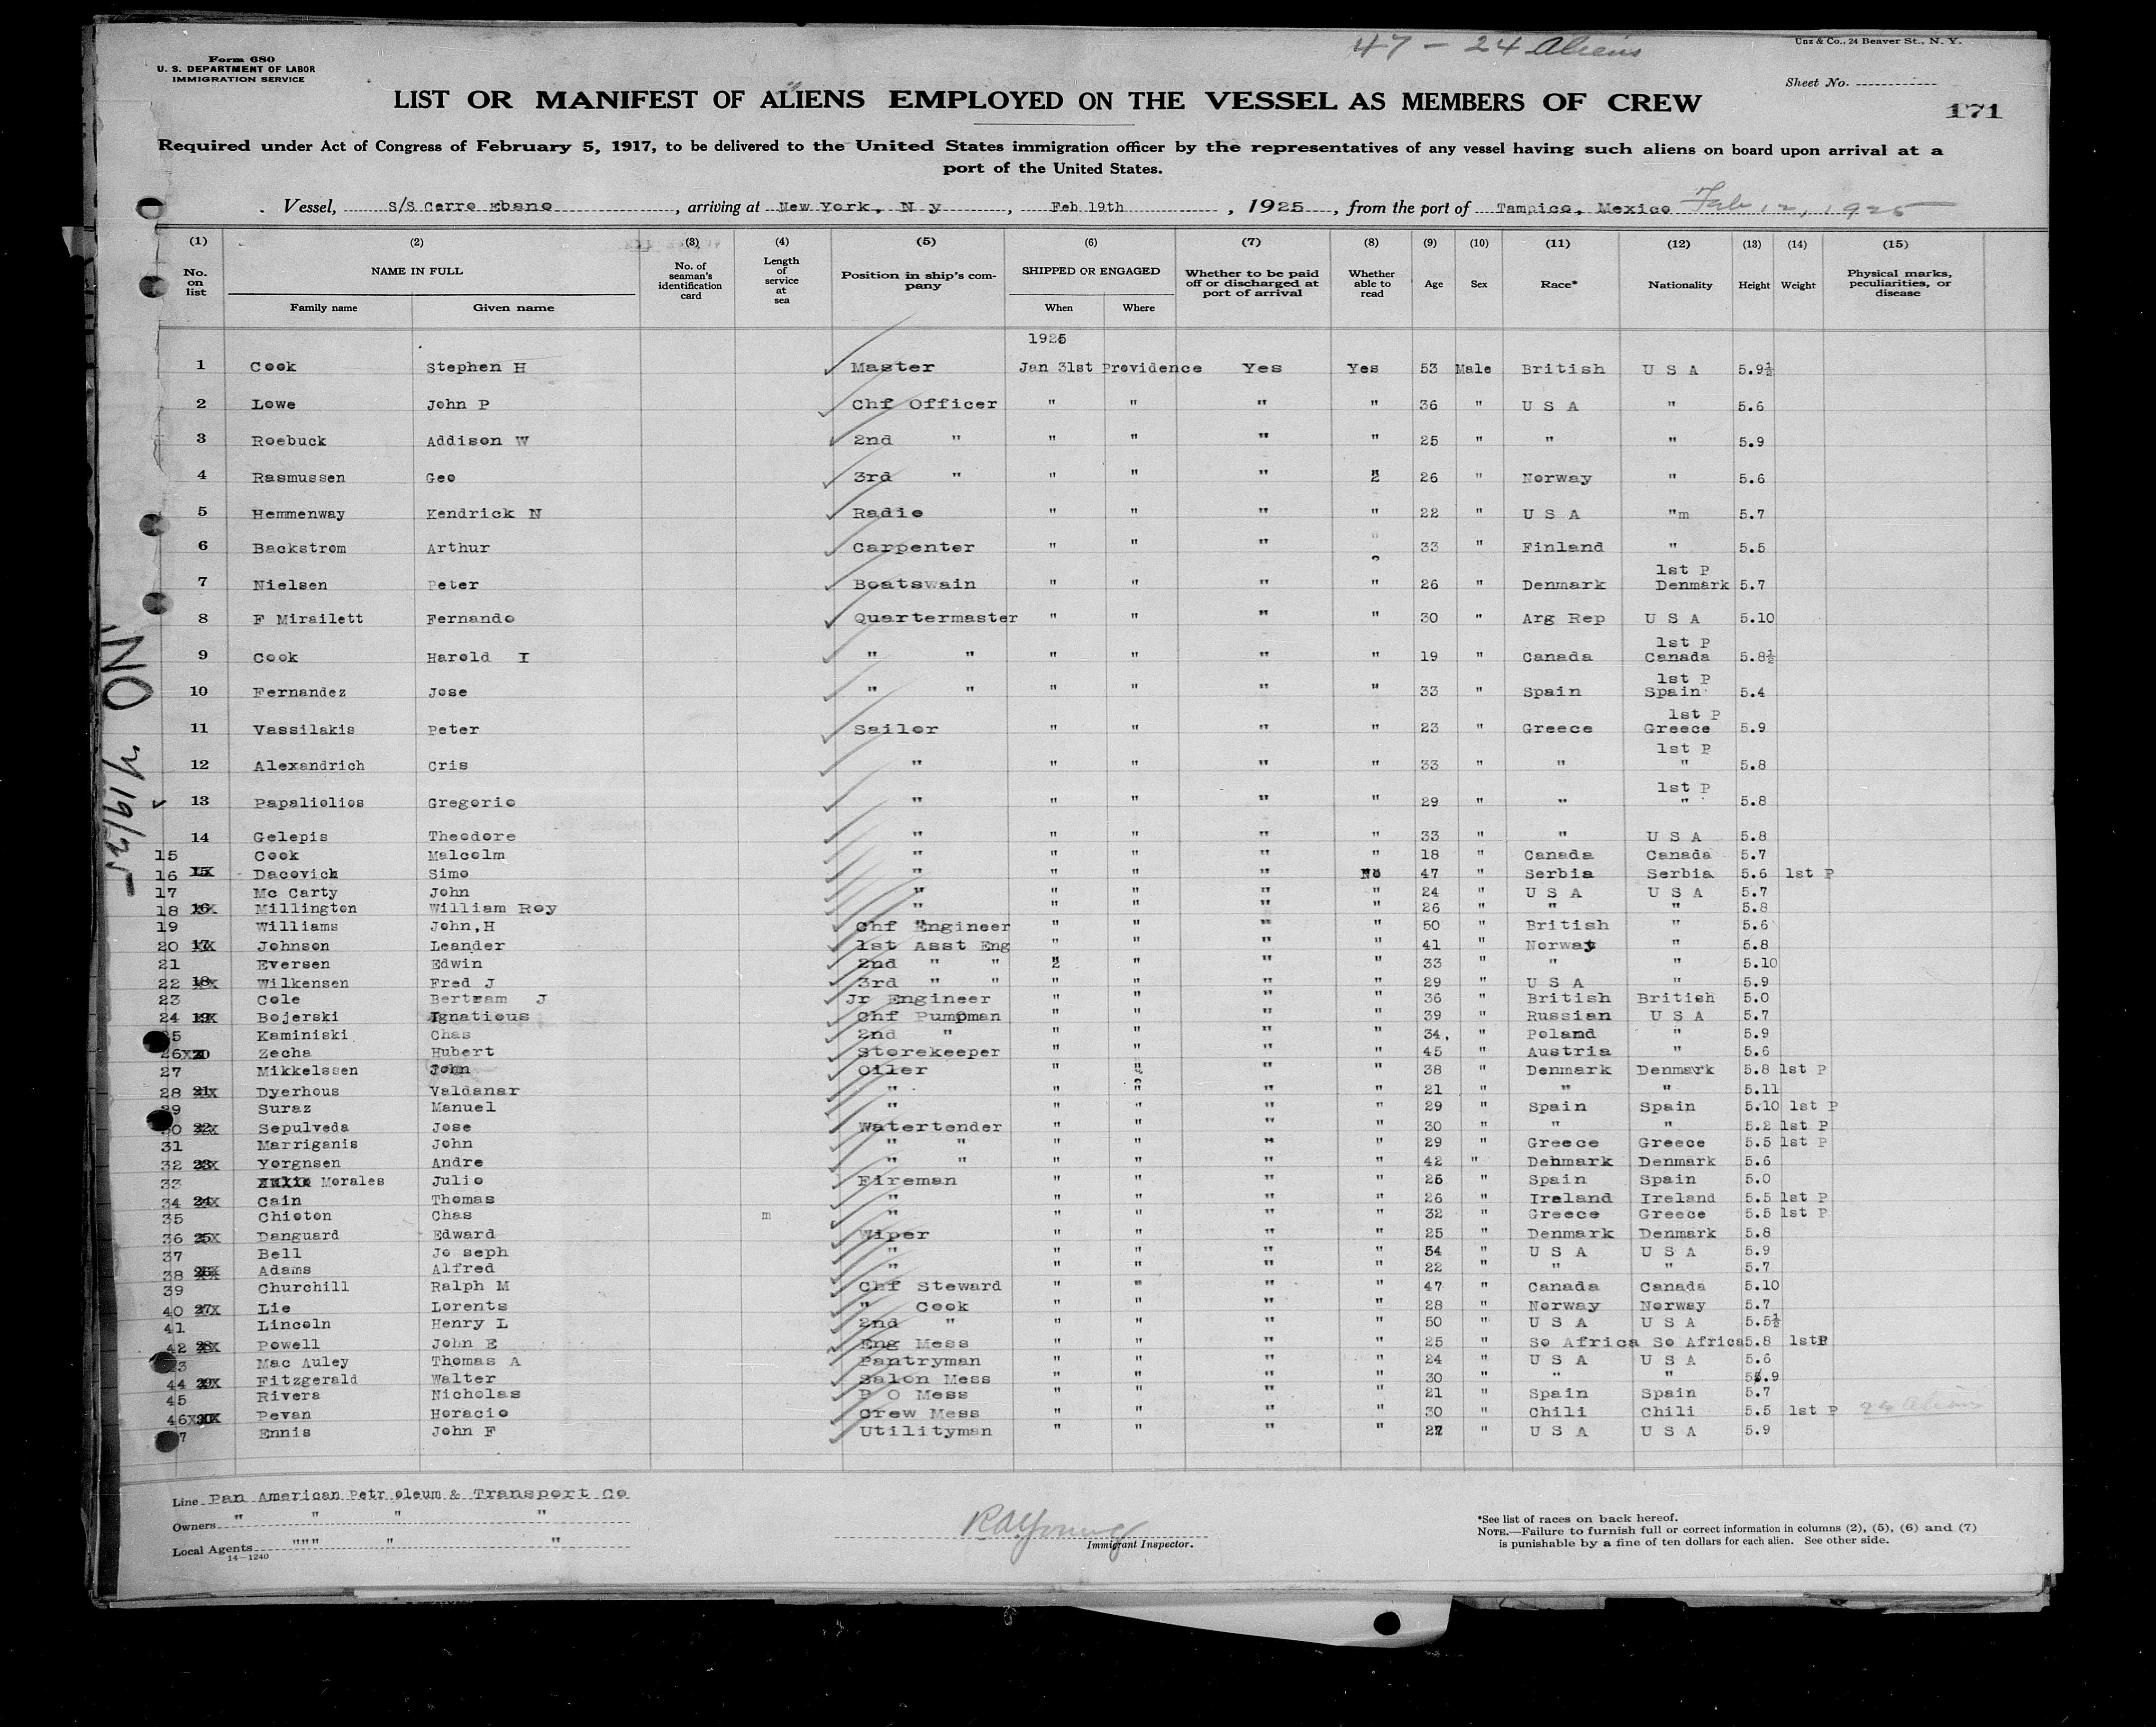 47 - 24 Aliens
Unz & Co., 24 Beaver St., N. Y.
Form 680
U. S. DEPARTMENT OF LABOR
IMMIGRATION SERVICE
Sheet No.
LIST OR MANIFEST OF ALIENS EMPLOYED ON THE VESSEL AS MEMBERS OF CREW
171
Required under Act of Congress of February 5, 1917, to be delivered to the United States immigration officer by the representatives of any vessel having such aliens on board upon arrival at a
port of the United States.
Vessel, S/S Cerro Ebano, arriving at New York, N y, Feb 19th, 1925, from the port of Tampico, Mexico Feb 12, 1925
(1) (2) (3) (4) (5) (6) (7) (8) (9) (10) (11) (12) (13) (14) (15)
No. on list NAME IN FULL No. of seaman's identification card Length of service at sea Position in ship's company SHIPPED OR ENGAGED Whether to be paid off or discharged at port of arrival Whether able to read Age Sex Race* Nationality Height Weight Physical marks, peculiarities, or disease
Family name Given name When Where
1925
1 Cook Stephen H Master Jan 31st Providence Yes Yes 53 Male British U S A 5.9½
2 Lowe John P Chf Officer " " " " 36 " U S A " 5.6
3 Roebuck Addison W 2nd " " " " " 25 " " " 5.9
4 Rasmussen Geo 3rd " " " " " 26 " Norway " 5.6
5 Hemmenway Kendrick N Radio " " " " 22 " U S A "m 5.7
6 Backstrom Arthur Carpenter " " " " 33 " Finland " 5.5
1st P
7 Nielsen Peter Boatswain " " " " 26 " Denmark Denmark 5.7
8 F Mirailett Fernando Quartermaster " " " " 30 " Arg Rep U S A 5.10
1st P
9 Cook Harold I " " " " " " 19 " Canada Canada 5.8½
1st P
10 Fernandez Jose " " " " " " 33 " Spain Spain 5.4
1st P
11 Vassilakis Peter Sailor " " " " 23 " Greece Greece 5.9
1st P
12 Alexandrich Cris " " " " " 33 " " " 5.8
1st P
13 Papaliolios Gregorio " " " " " 29 " " " 5.8
14 Gelepis Theodore " " " " " 33 " " U S A 5.8
15 Cook Malcolm " " " " " 18 " Canada Canada 5.7
16 Dacovich Simo " " " " No 47 " Serbia Serbia 5.6 1st P
17 Mc Carty John " " " " " 24 " U S A U S A 5.7
18 Millington William Roy " " " " " 26 " " " 5.8
19 Williams John,H Chf Engineer " " " " 50 " British " 5.6
20 Johnson Leander 1st Asst Eng " " " " 41 " Norway " 5.8
21 Eversen Edwin 2nd " " " " " " 33 " " " 5.10
22 Wilkensen Fred J 3rd " " " " " " 29 " U S A " 5.9
23 Cole Bertram J Jr Engineer " " " " 36 " British British 5.0
24 Bojerski Ignatious Chf Pumpman " " " " 39 " Russian U S A 5.7
25 Kaminiski Chas 2nd " " " " " 34, " Poland " 5.9
26 Zecha Hubert Storekeeper " " " " 45 " Austria " 5.6
27 Mikkelssen John Oiler " " " " 38 " Denmark Denmark 5.8 1st P
28 Dyerhous Valdanar " " " " " 21 " " " 5.11
29 Suraz Manuel " " " " " 29 " Spain Spain 5.10 1st P
30 Sepulveda Jose Watertender " " " " 30 " " " 5.2 1st P
31 Marriganis John " " " " " " 29 " Greece Greece 5.5 1st P
32 Yorgnsen Andre " " " " " " 42 " Denmark Denmark 5.6
33 Morales Julio Fireman " " " " 26 " Spain Spain 5.0
34 Cain Thomas " " " " " 26 " Ireland Ireland 5.5 1st P
35 Chioton Chas m " " " " " 32 " Greece Greece 5.5 1st P
36 Danguard Edward Wiper " " " " 25 " Denmark Denmark 5.8
37 Bell Jo seph " " " " " 54 " U S A U S A 5.9
38 Adams Alfred " " " " " 22 " " " 5.7
39 Churchill Ralph M Chf Steward " " " " 47 " Canada Canada 5.10
40 Lie Lorents " Cook " " " " 28 " Norway Norway 5.7
41 Lincoln Henry L 2nd " " " " " 50 " U S A U S A 5.5½
42 Powell John E Eng Mess " " " " 25 " So Africa So Africa 5.8 1stP
43 Mac Auley Thomas A Pantryman " " " " 24 " U S A U S A 5.6
44 Fitzgerald Walter Salon Mess " " " " 30 " " " 5.9
45 Rivera Nicholas P O Mess " " " " 21 " Spain Spain 5.7
46 Pevan Horacio Crew Mess " " " " 30 " Chili Chili 5.5 1st P 24 aliens
47 Ennis John F Utilityman " " " " 22 " U S A U S A 5.9
Line Pan American Petr oleum & Transport Co
Owners " " " "
Local Agents """ " "
14-1240
Immigrant Inspector.
*See list of races on back hereof.
NOTE.—Failure to furnish full or correct information in columns (2), (5), (6) and (7)
is punishable by a fine of ten dollars for each alien. See other side.